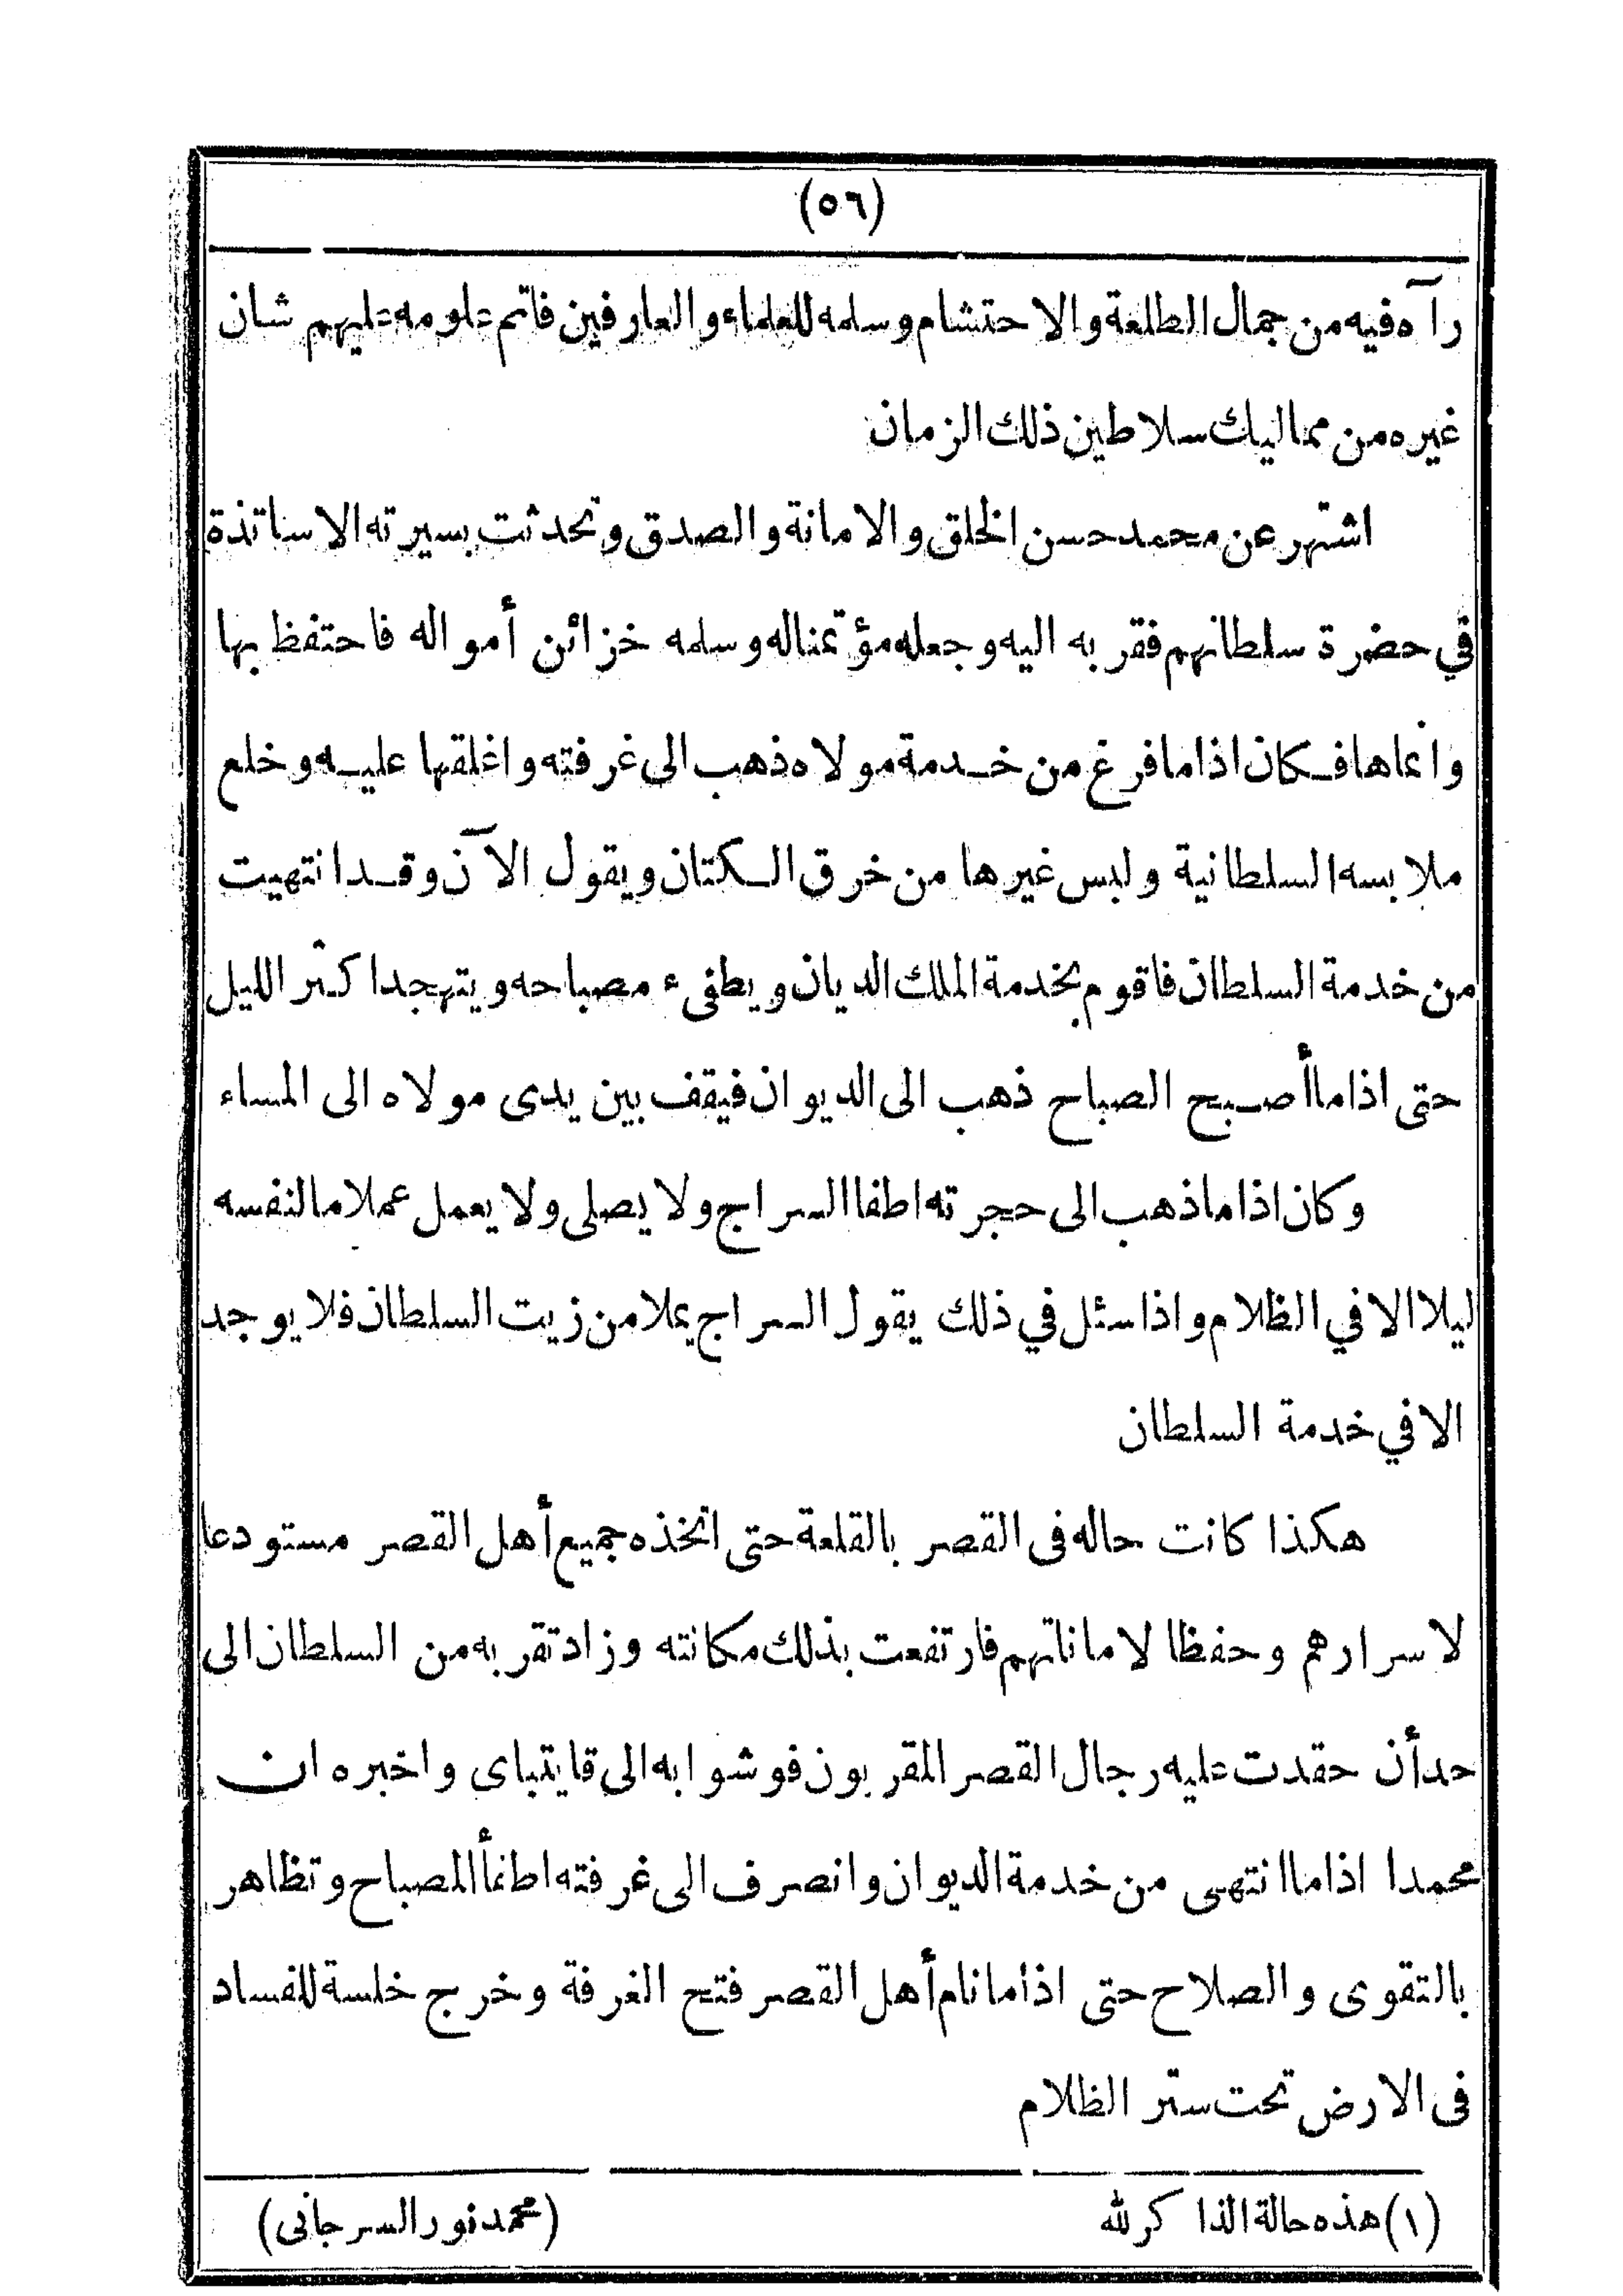 (٥٦)
رآه فيه من جمال الطلعة والاحتشام وسلمه للعلماء والعارفين فاتم علومه عليهم شان
غيره من مماليك سلاطين ذلك الزمان
اشتهر عن محمد حسن الخلق والامانة والصدق وتحدثت بسيرته الاساتذة
في حضرة سلطانهم فقربه اليه وجعله مؤتمنا له وسلمه خزائن أمواله فاحتفظ بها
وانماها فكان اذا ما فرغ من خدمة مولاه ذهب الى غرفته واغلقها عليه وخلع
ملابسه السلطانية ولبس غيرها من خرق الكتان ويقول الآن وقد انتهيت
من خدمة السلطان فاقوم بخدمة الملك الديان ويطفىء مصباحه ويتهجد اكثر الليل
حتى اذا ما أصبح الصباح ذهب الى الديوان فيقف بين يدى مولاه الى المساء
وكان اذا ما ذهب الى حجرته اطفا السراج ولا يصلى ولا يعمل عملا ما لنفسه
ليلا الا في الظلام واذا سئل في ذلك يقول السراج يملا من زيت السلطان فلا يوجد
الا في خدمة السلطان
هكذا كانت حاله فى القصر بالقلعة حتى اتخذه جميع أهل القصر مستودعا
لاسرارهم وحفظا لاماناتهم فارتفعت بذلك مكانته وزاد تقربه من السلطان الى
حد أن حقدت عليه رجال القصر المقربون فوشوا به الى قايتباى واخبره ان
محمدا اذا ما انتهى من خدمة الديوان وانصرف الى غرفته اطفأ المصباح وتظاهر
بالتقوى والصلاح حتى اذا ما نام أهل القصر فتح الغرفة وخرج خلسة للفساد
فى الارض تحت ستر الظلام
(١) هذه حالة الذاكر لله (محمد نور السرجانى)